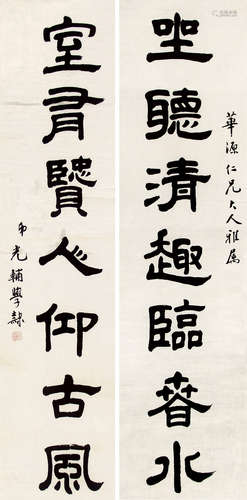 華源仁兄大人雅屬
坐聽清趣臨春水
室有賢人仰古風
光輔學隸